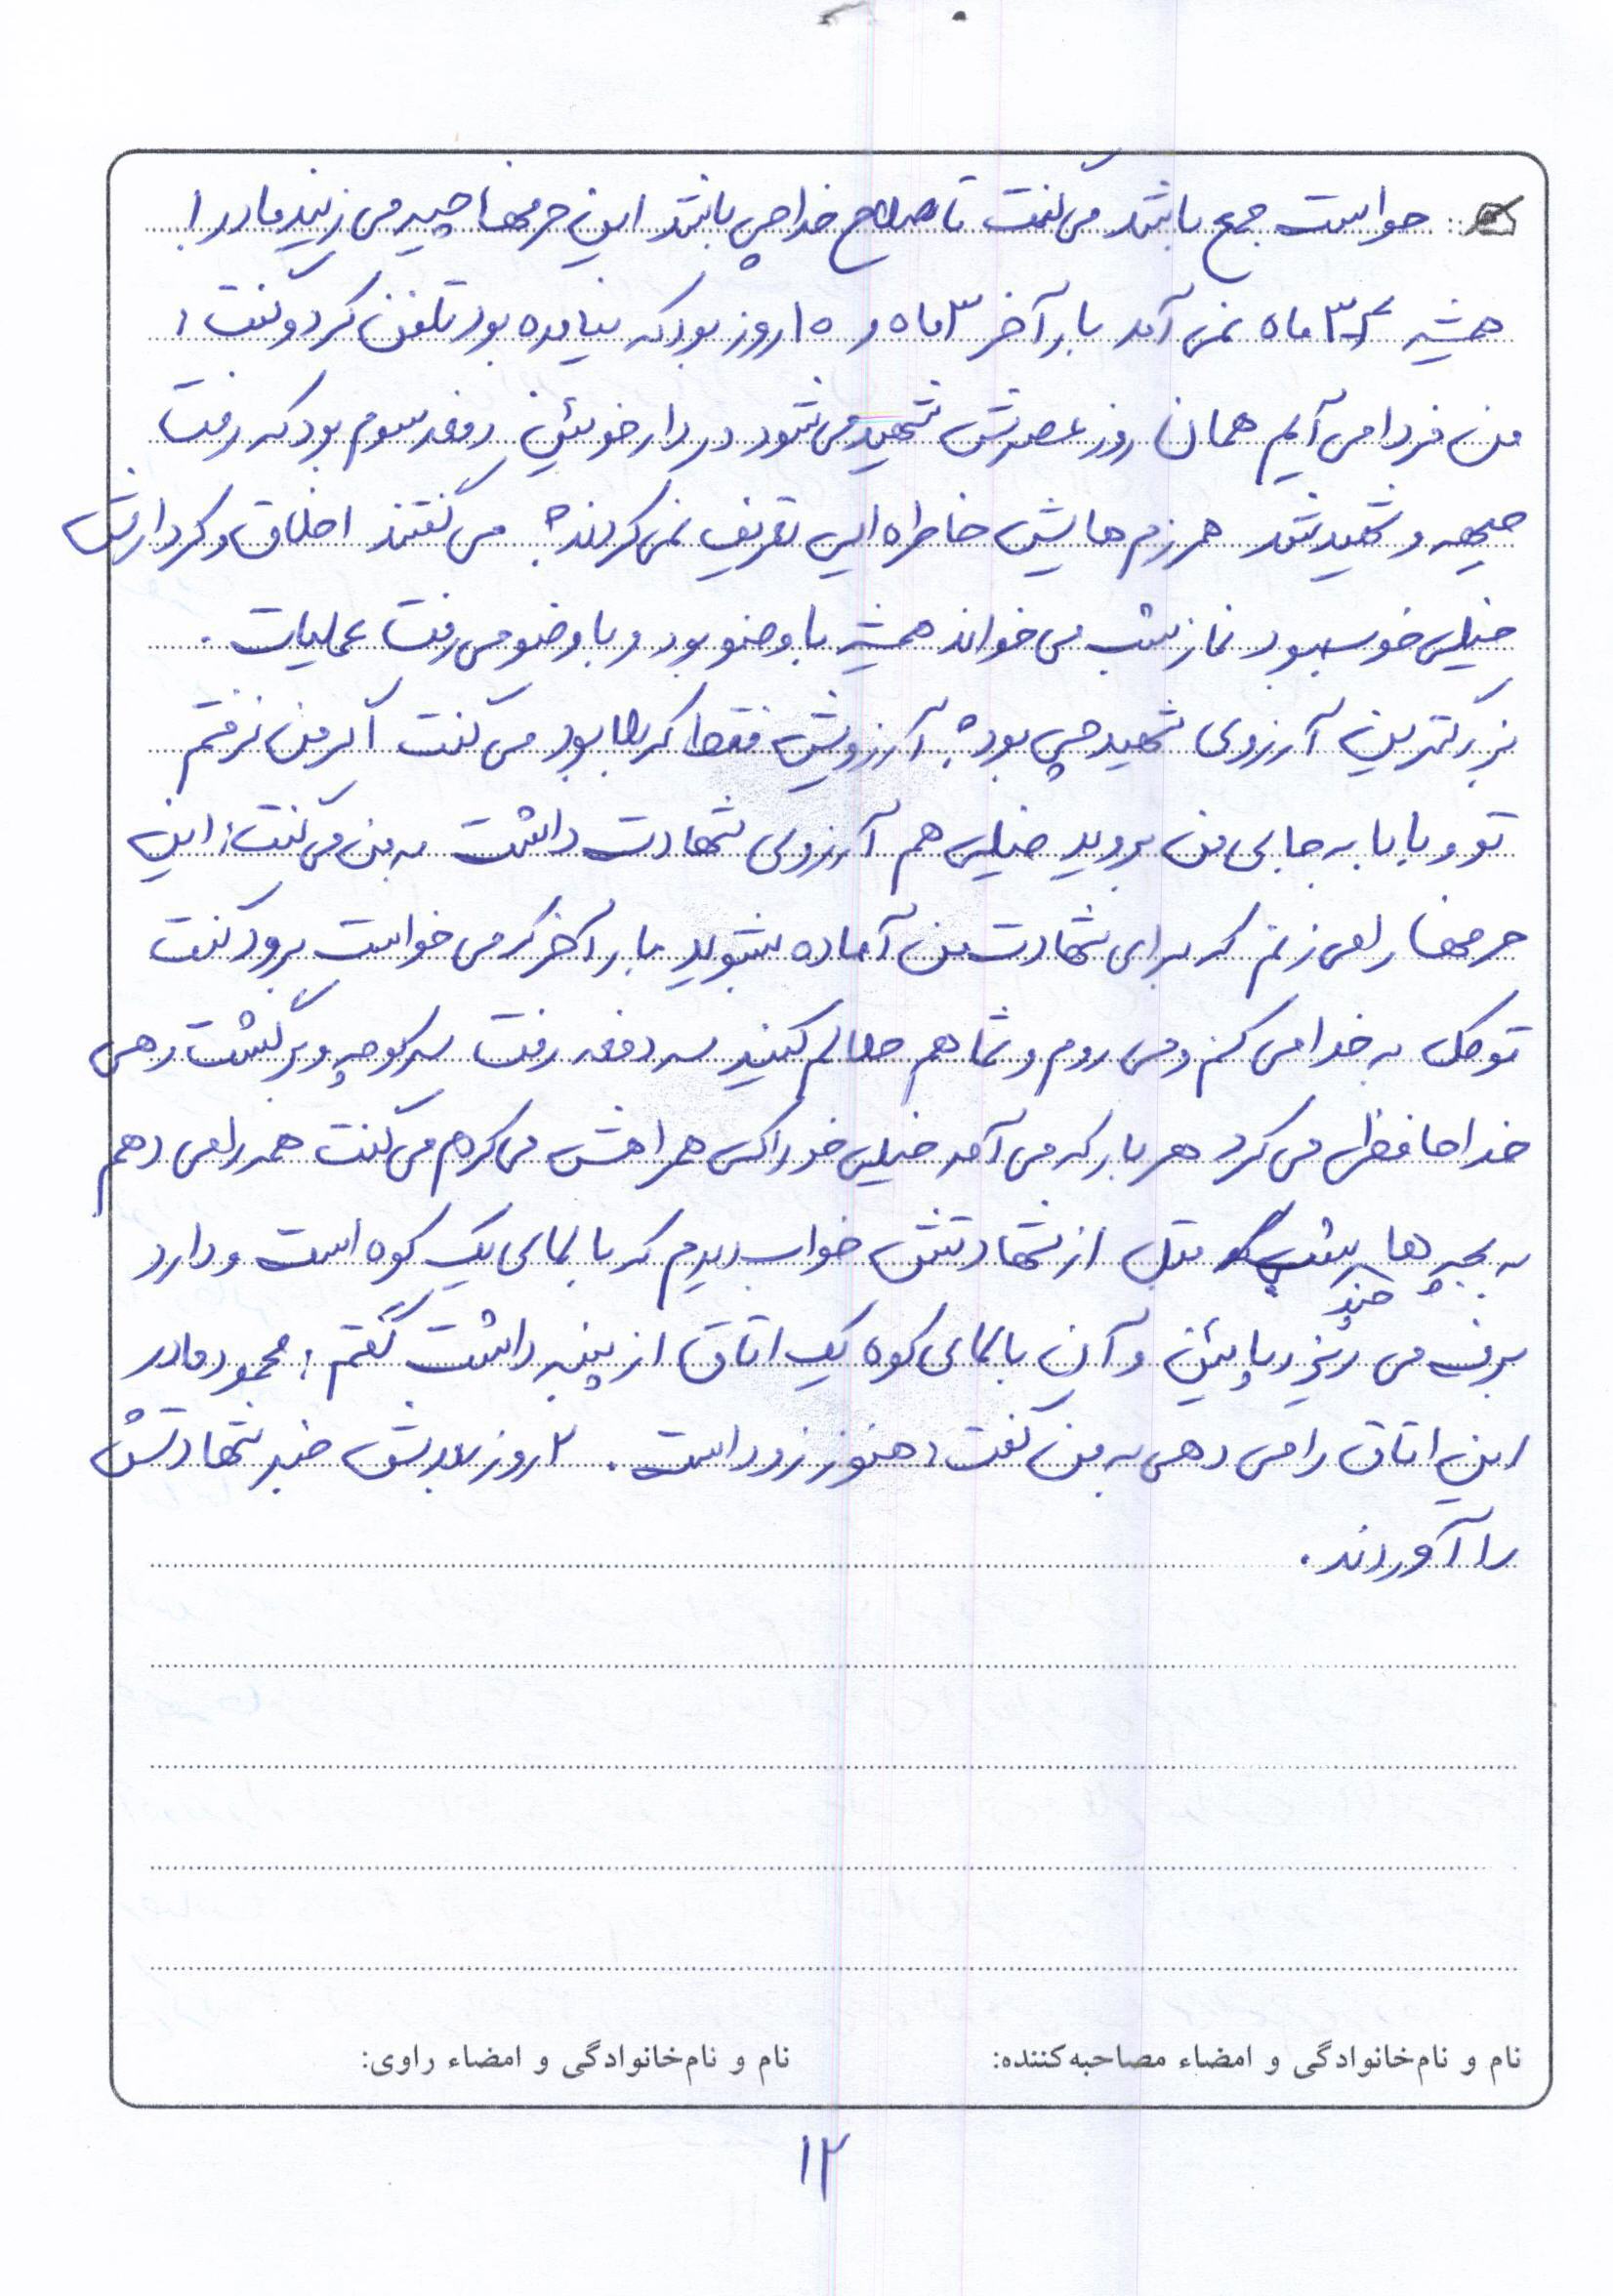 حواست جمع باشد می گفت تا صلاح خدا چی باشد این حرفها چیه می زنید مادر!
همشیه ۲-۳ ماه نمی آمد بار آخر ۳ ماه و ۱۵ روز بود که نیامده بود تلفن کرد و گفت:
من فردا می آیم همان روز عصرش شهید می شود در دارخوئین دفعه سوم بود که رفت
جبهه و شهید شد همرزم هایش خاطره ایی تعریف نمی کردند؟ می گفتند اخلاق و کردارش
خیلی خوب بود نماز شب می خواند همشیه با وضو بود و با وضو می رفت عملیات.
بزرگترین آرزوی شهید چی بود؟ آرزویش فقط کربلا بود می گفت اگر من نرفتم
تو و بابا به جای من بروید خیلی هم آرزوی شهادت داشت به من می گفت: این
حرفها را می زنم که برای شهادت من آماده بشوید بار آخر که می خواست برود گفت
توکل به خدا می کنم و می روم و شما هم حلالم کنید سه دفعه رفت سر کوچه و برگشت و هی
خداحافظی می کرد هر بار که می آمد خیلی خوراکی همراهش می کردم می گفت همه را می دهم
به بچه ها چند شب قبل از شهادتش خواب دیدم که بالای یک کوه است و دارد
برف می ریزد پایئن و آن بالای کوه یک اتاق از پنبه داشت گفتم: محمود مادر
این اتاق را می دهی به من گفت: هنوز زود است. ۲ روز بعدش خبر شهادتش
را آوردند.
نام و نام‌خانوادگی و امضاء مصاحبه‌کننده: نام و نام‌خانوادگی و امضاء راوی:
۱۲